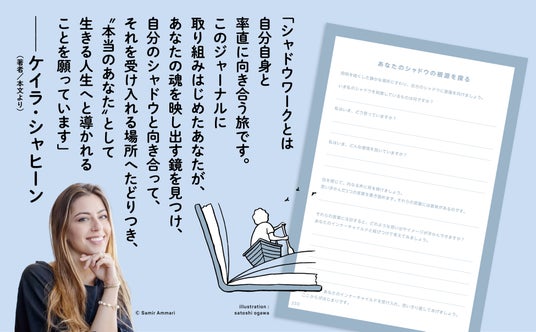 「シャドウワークとは
自分自身と
率直に向き合う旅です。
このジャーナルに
取り組みはじめたあなたが、
あなたの魂を映し出す鏡を見つけ、
自分のシャドウと向き合って、
それを受け入れる場所へたどりつき、
〝本当のあなた〟として
生きる人生へと導かれる
ことを願っています」
── ケイラ・シャヒーン
(著者/本文より)
© Samir Ammari
illustration :
satoshi ogawa
あなたのシャドウの根源を探る
私はいま、どう感じていますか?